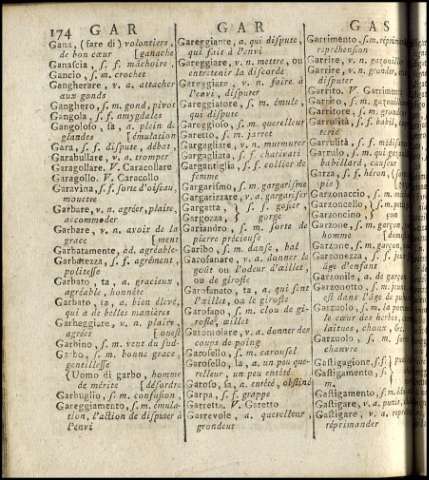 174 GAR GAR GAS
Gana, (fare di) volontiers,
de bon cœur [ganache
Ganascia, s. f. machoire,
Gancio, s. m. crochet
Gangherare, v. a. attacher
aux gonds
Ganghero, s. m. gond, pivot
Gangola, s. f. amygdales
Gangoloso, sa, a. plein de
glandes [émulation
Gara, s. f. dispute, débat,
Garabullare, v. a. tromper
Garagollare. V. Caracollare
Garagollo. V. Caracollo
Garavina, s. f. sorte d'oiseau,
mouette
Garbare, v. n. agréer, plaire,
accommoder
Garbare, v. n. avoir de la
grace [ment
Garbatamente, ad. agréable-
Garbatezza, s. f. agrément,
politesse
Garbato, ta, a. gracieux,
agréable, honnête
Garbato, ta, a. bien élevé,
qui a de belles manières
Garbeggiare, v. n. plaire,
agréer [ouest
Garbino, s. m. vent du sud-
Garbo, s. m. bonne grace,
gentillesse
(Uomo di garbo, homme
de mérite [désordre
Garbuglio, s. m. confusion,
Gareggiamento, s. m. émula-
tion, l'action de disputer à
l'envi
Gareggiante, a. qui dispute,
qui fait à l'envi
Gareggiare, v. n. mettre, ou
entretenir la discorde
Gareggiare, v. n. faire à
l'envi, disputer
Gareggiatore, s. m. émule,
qui dispute
Gareggioso, s. m. querelleur
Garetto, s. m. jarret
Gargagliare, v. n. murmurer
Gargagliata, s. f. charivari
Gargantiglia, s. f. collier de
femme
Gargarismo, s. m. gargarisme
Gargarizzare, v. a. gargariser
Gargatta, } s. f. gosier,
Gargozza, } gorge
Gariandro, s. m. sorte de
pierre précieuse
Garibo, s. m. danse, bal
Garofanare, v. a. donner le
goût ou l'odeur d'œillet,
ou de girofle
Garofanato, ta, a. qui sent
l'œillet, ou le girofle
Garofano, s. m. clou de gi-
rofle, œillet
Garontolare, v. a. donner des
coups de poing
Garosello, s. m. carousel
Garosello, la, a. un peu que-
relleur, un peu entêté
Garoso, sa, a. entêté, obstiné
Garpa, s. f. grappe
Garretta. V. Garetto
Garrevole, a. querelleur
grondeur
Garrimento, s. m. réprimande
répréhension
Garrire, v. n. gazouiller
Garrire, v. n. gronder,
Garrito. V. Garrimento
Garrito, s. m. gazouillem
Garritore, s. m. grondeur
Garrulità, s. f. babil,
Garrulità, s. f. médisan
Garrulo, s. m. qui gazou
babillard, causeur
Garza, s. f. héron,
pie)
Garzonaccio, s. m.
Garzoncello, } s. m.
Garzoncino }
Garzone, s. m. garçon,
homme
Garzone, s. m.
âge d'enfant
Garzonile, a. de garçon
Garzonetto, s. m.
est dans l'âge de
Garzuolo, s. m.
le cœur des herbes,
laitues, choux, &c.
Garzuolo, s. m.
chanvre
Gastigagione, s. f.
Gastigamento, s.
m.
Gastigamento, s. m.
Gastigare, v. a. punir,
Gastigare, v. a.
réprimander